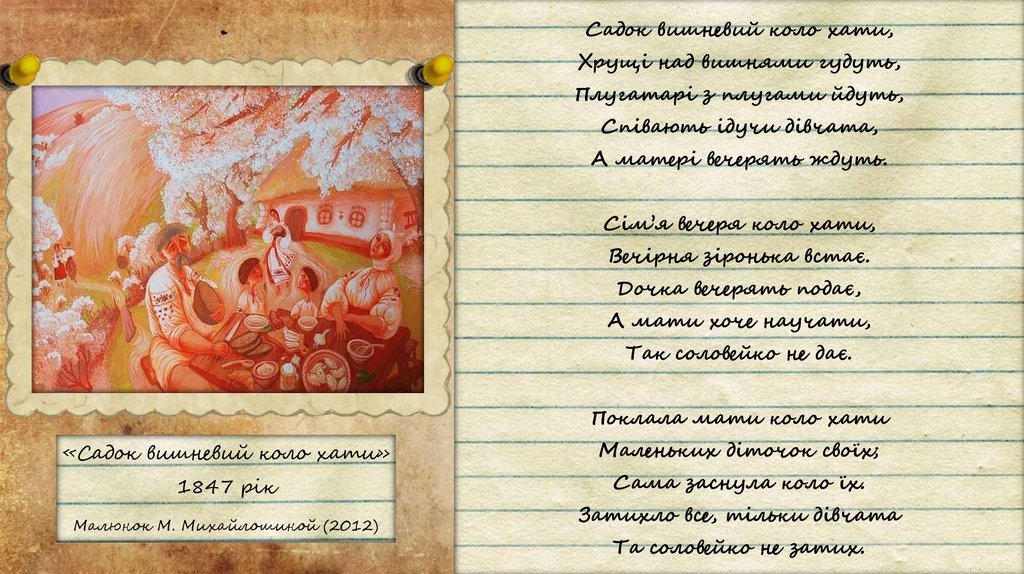 «Садок вишневий коло хати»
1847 рік
Малюнок М. Михайлошиной (2012)
Садок вишневий коло хати,
Хрущі над вишнями гудуть,
Плугатарі з плугами йдуть,
Співають ідучи дівчата,
А матері вечерять ждуть.
Сім’я вечеря коло хати,
Вечірня зіронька встає.
Дочка вечерять подає,
А мати хоче научати,
Так соловейко не дає.
Поклала мати коло хати
Маленьких діточок своїх;
Сама заснула коло їх.
Затихло все, тільки дівчата
Та соловейко не затих.